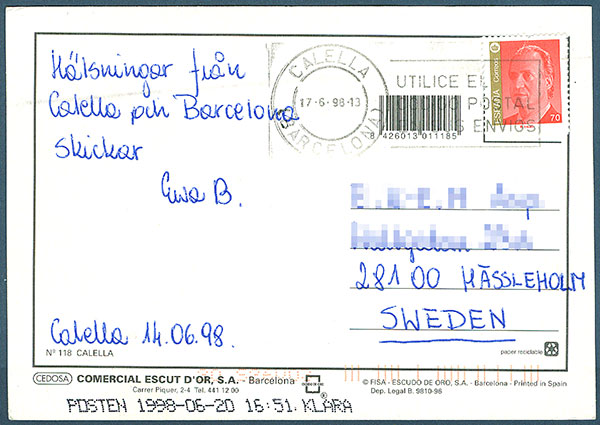 Hälsningar från
Calella och Barcelona
skickar
Ewa B.
Calella 14.06.98.
CALELLA
17-6-98-13
BARCELONA
UTILICE E
POSTAL
ENVIOS
8 426013 011185
ESPAÑA Correos
70
281 00 HÄSSLEHOLM
SWEDEN
Nº 118 CALELLA
paper recyclable
CEDOSA
COMERCIAL ESCUT D'OR, S.A. - Barcelona
Carrer Piquer, 2-4 Tel. 441 12 00
ESCUDO DE ORO
®
© FISA - ESCUDO DE ORO, S.A. - Barcelona - Printed in Spain
Dep. Legal B. 9810-98
POSTEN 1998-06-20 16:51 KLARA